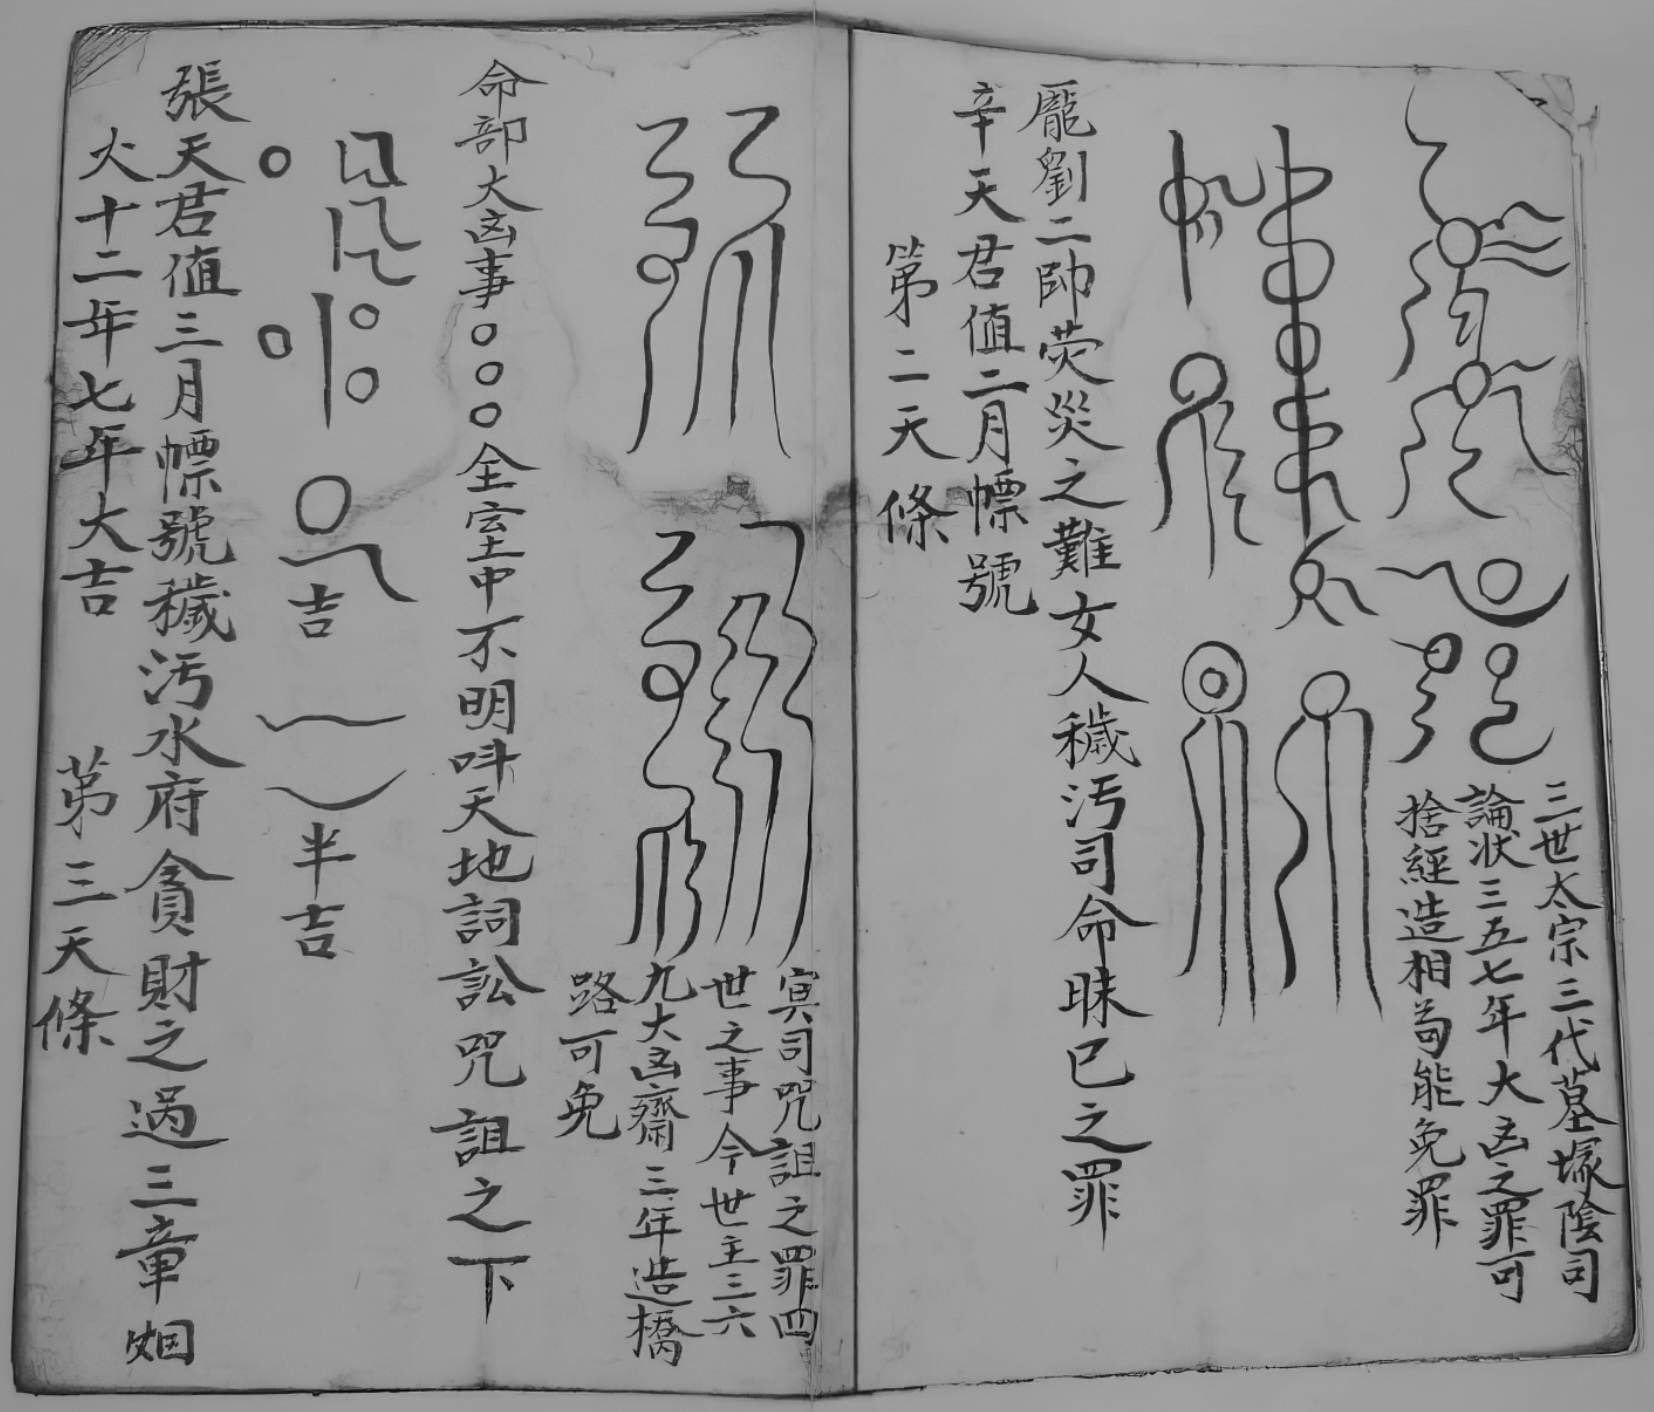 三世太宗三代墓塚陰司
論狀三五七年大凶之罪可
捨經造相茍能免罪
龐劉二帥熒災之難女人穢汚司命昧已之罪
辛天君值二月幖號
第二天條
冥司咒詛之罪四
世之事今世主三六
九大凶齋三年造橋
路可免
命部大凶事○○○全室中不明呌天地詞訟咒詛之下
吉
半吉
張天君值三月幖號穢汚水府貪財之過三章烟
火十二年七年大吉
第三天條